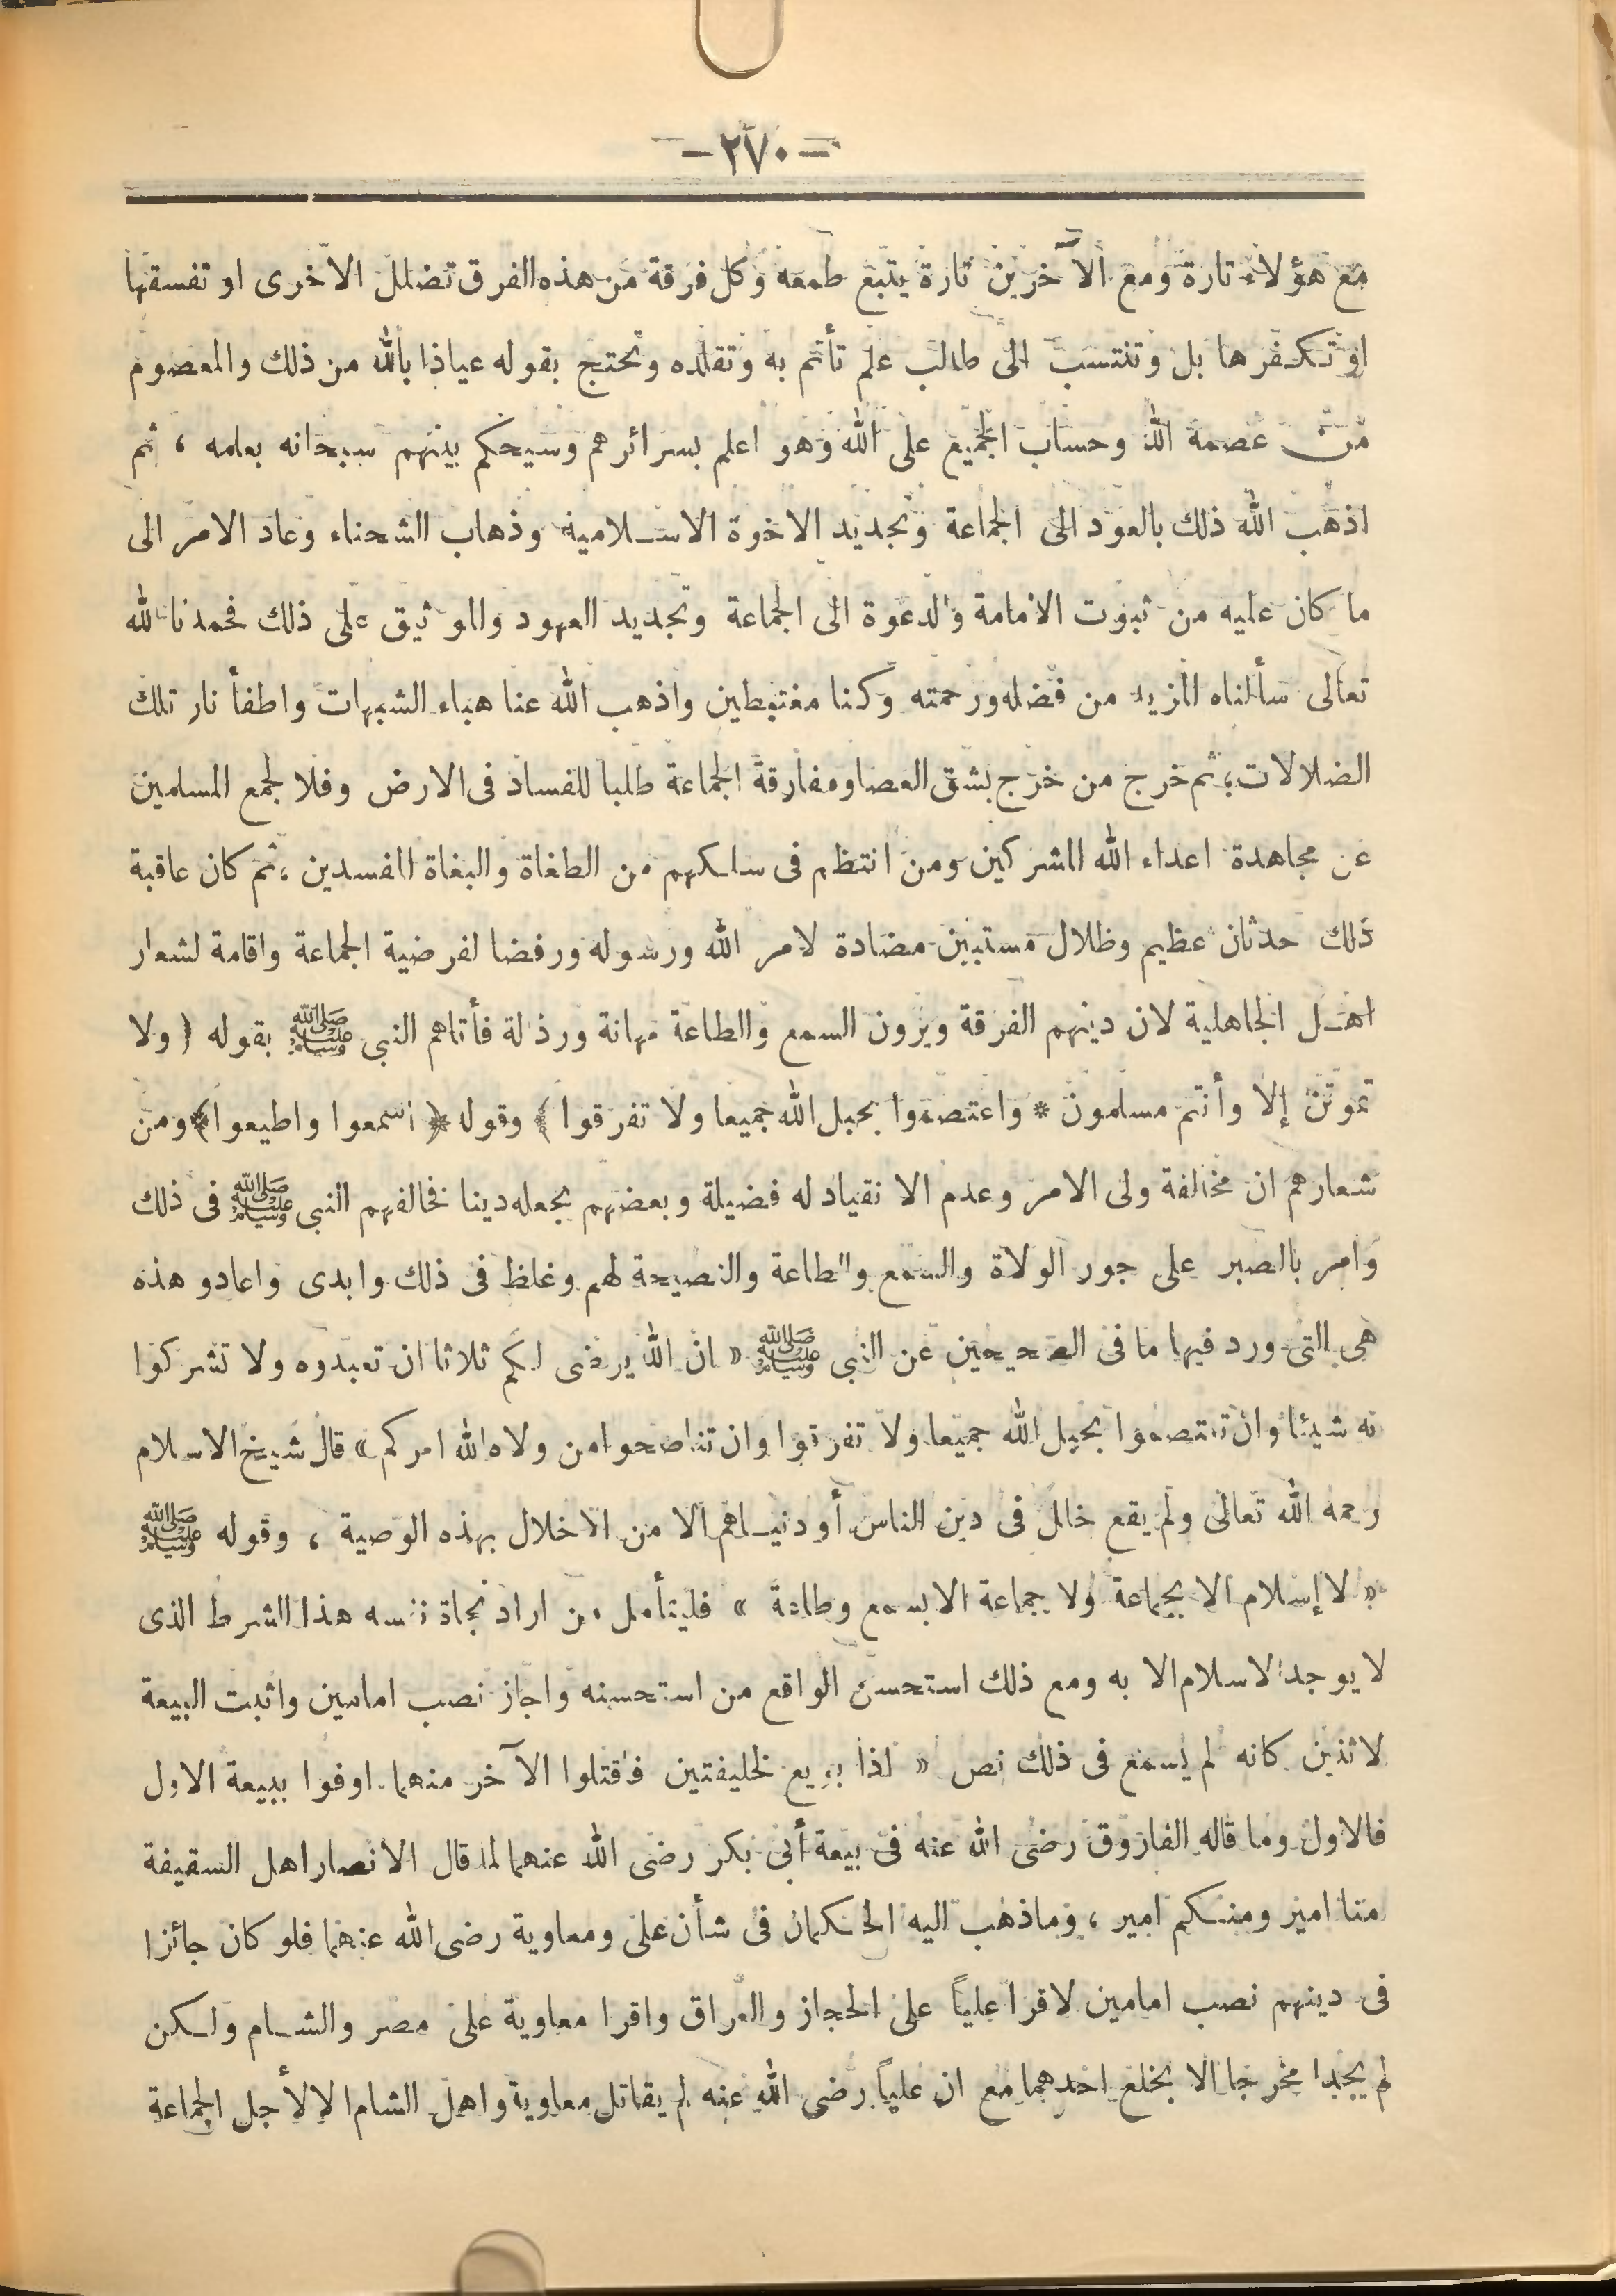 - ٢٧٠ -
مع هؤلاء تارة ومع الآخرين تارة يتبع طمعه وكل فرقة من هذه الفرق تضلل الاخرى او تفسقها
او تكفرها بل وتنتسب الى طالب علم تأتم به وتقلده وتحتج بقوله عياذا بالله من ذلك والمعصوم
من عصمه الله وحساب الجميع على الله وهو اعلم بسرائرهم وسيحكم بينهم سبحانه بعلمه ، ثم
اذهب الله ذلك بالعود الى الجماعة وتجديد الاخوة الاسلامية وذهاب الشحناء وعاد الامر الى
ما كان عليه من ثبوت الامامة والدعوة الى الجماعة وتجديد العهود والموثيق على ذلك فحمدنا لله
تعالى سألناه المزيد من فضله ورحمته وكنا مغتبطين واذهب الله عنا هباء الشبهات واطفأ نار تلك
الضلالات ، ثم خرج من خرج بشق العصا ومفارقة الجماعة طلبا للفساد فى الارض وفلا لجمع المسلمين
عن مجاهدة اعداء الله المشركين ومن انتظم فى سلكهم من الطغاة والبغاة المفسدين ، ثم كان عاقبة
ذلك حدثان عظيم وظلال مستبين مضادة لامر الله ورسوله ورفضا لفرضية الجماعة واقامة لشعار
اهل الجاهلية لان دينهم الفرقة ويرون السمع والطاعة مهانة ورذلة فأتاهم النبى ﷺ بقوله ﴿ ولا
تموتن إلا وأنتم مسلمون * واعتصموا بحبل الله جميعا ولا تفرقوا ﴾ وقوله ﴿ اسمعوا واطيعوا ﴾ ومن
شعارهم ان مخالفة ولى الامر وعدم الانقياد له فضيلة وبعضهم يجعله دينا فخالفهم النبى ﷺ فى ذلك
وامر بالصبر على جور الولاة والسمع والطاعة والنصيحة لهم وغلظ فى ذلك وابدى واعادو هذه
هى التى ورد فيها ما فى الصحيحين عن النبى ﷺ « ان الله يرضى لكم ثلاثا ان تعبدوه ولا تشركوا
به شيئا وان تعتصموا بحبل الله جميعا ولا تفرقوا وان تناصحوا من ولاه الله امركم » قال شيخ الاسلام
رحمه الله تعالى ولم يقع خلل فى دين الناس أو دنياهم الا من الاخلال بهذه الوصية ، وقوله ﷺ
« لا إسلام الا بجماعة ولا جماعة الا بسمع وطاعة » فليتأمل من اراد نجاة نفسه هذا الشرط الذى
لا يوجد الاسلام الا به ومع ذلك استحسن الواقع من استحسنه واجاز نصب امامين واثبت البيعة
لاثنين كانه لم يسمع فى ذلك نص « اذا بويع لخليفتين فاقتلوا الآخر منهما . اوفوا ببيعة الاول
فالاول وما قاله الفاروق رضى الله عنه فى بيعة أبى بكر رضى الله عنهما لما قال الانصار اهل السقيفة
منا امير ومنكم امير ، وماذهب اليه الحكمان فى شأن على ومعاوية رضى الله عنهما فلو كان جائزا
فى دينهم نصب امامين لاقرا علياً على الحجاز والعراق واقرا معاوية على مصر والشام ولكن
لم يجدا مخرجا الا بخلع احدهما مع ان علياً رضى الله عنه لم يقاتل معاوية واهل الشام الا لأجل الجماعة